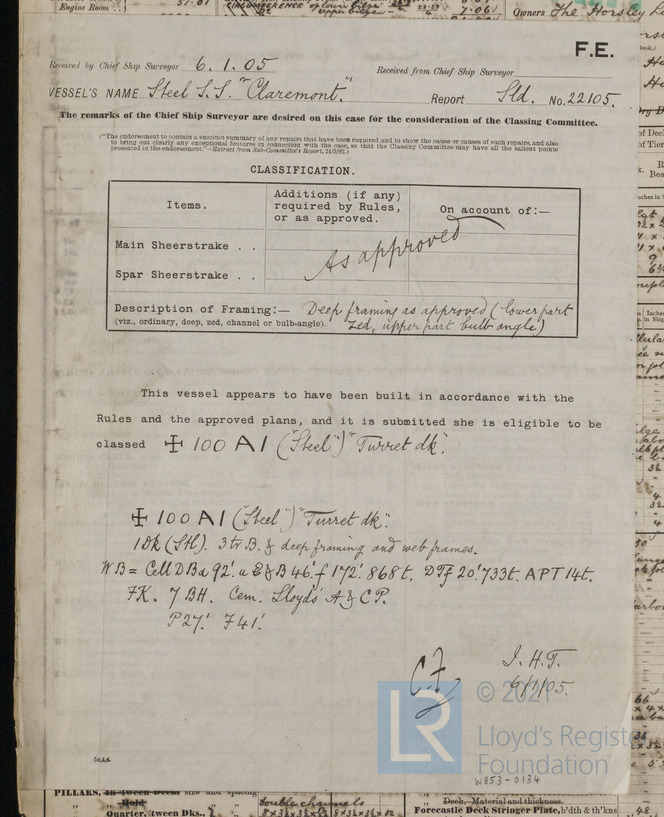 Engine Room
Circumference of lower Bilge
Upper Bilge
7.06
Owners The Horsley
F.E.
Received by Chief Ship Surveyor 6.1.05
Received from Chief Ship Surveyor
VESSEL'S NAME Steel S.S. "Claremont."
Report Sld. No. 22105.
The remarks of the Chief Ship Surveyor are desired on this case for the consideration of the Classing Committee.
("The endorsement to contain a succinct summary of any repairs that have been required, and to show the cause or causes of such repairs, and also
to bring out clearly any exceptional features in connection with the case, so that the Classing Committee may have all the salient points
presented in the endorsement."—Extract from Sub-Committee's Report, 24/5/92.)
CLASSIFICATION.
Items.
Additions (if any) required by Rules, or as approved.
On account of:—
Main Sheerstrake . .
As approved
Spar Sheerstrake . .
Description of Framing:— Deep framing as approved (lower part
(viz., ordinary, deep, zed, channel or bulb-angle). zed, upper part bulb angle)
This vessel appears to have been built in accordance with the
Rules and the approved plans, and it is submitted she is eligible to be
classed ✠ 100 A1 ("Steel") "Turret dk".
✠ 100 A1 ("Steel") "Turret dk".
1 Dk (Stl). 3 tr B. & deep framing and web frames.
WB = Cell D Ba 92'. u E & B 46'. f 172'. 868t. DTf 20'. 733t. APT 14t.
FK. 7 BH. Cem. Lloyds' A & CP.
P 27'. F 41'.
J.H.T.
6/1/05.
© 2021
LR
Lloyd's Regist
Foundation
W853-0134
PILLARS, In 'tween Deck, size and spacing
Hold
Quarter, 'tween Dks.,
double channels
Deck, Material and thickness.
Forecastle Deck Stringer Plate, b'dth & th'kns
48